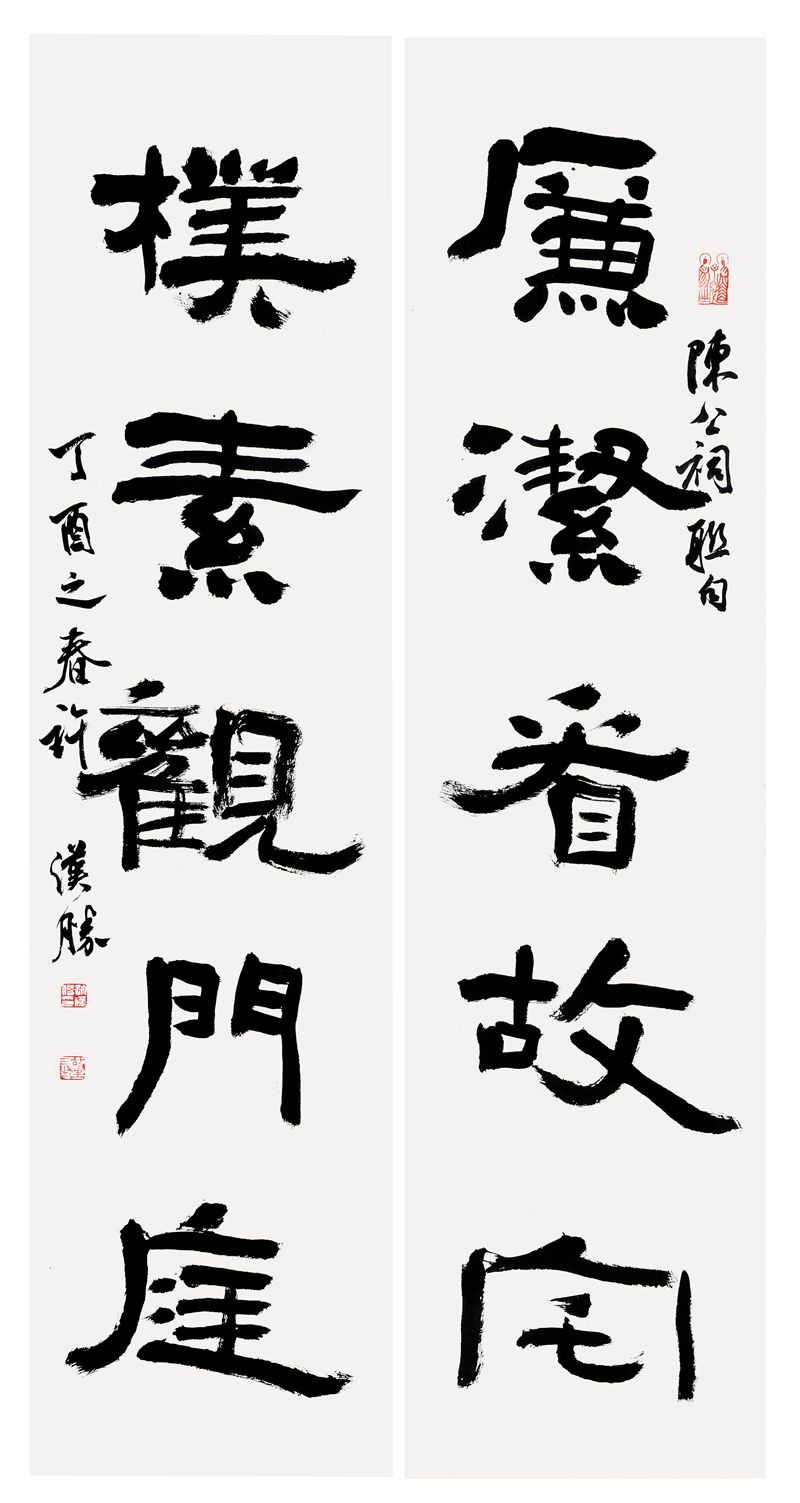 廉潔看故宅
陳公祠聯句
樸素觀門庭
丁酉之春許漢勝